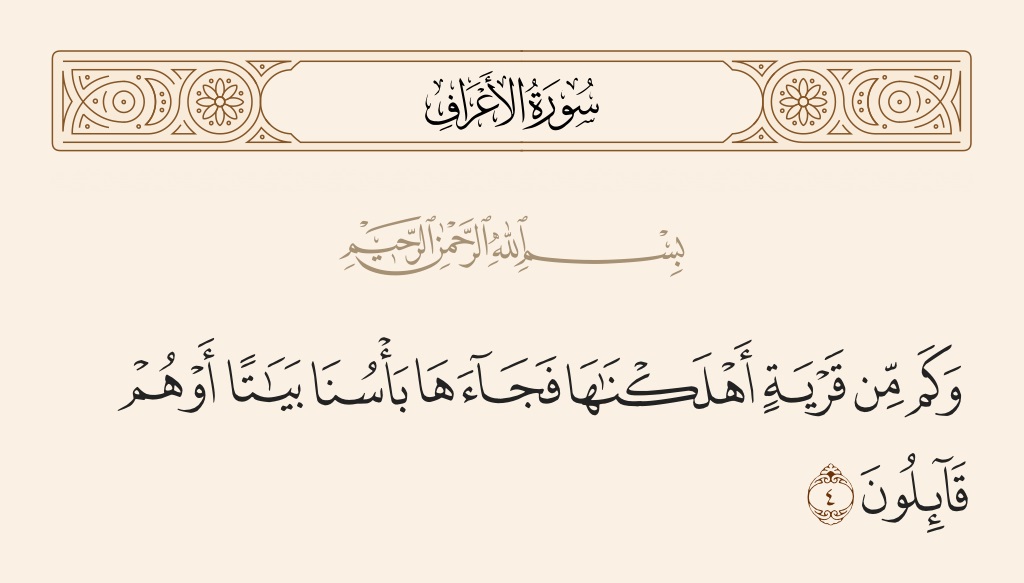 سُورَةُ الأَعْرَافِ
بِسْمِ ٱللَّهِ ٱلرَّحْمَٰنِ ٱلرَّحِيمِ
وَكَم مِّن قَرْيَةٍ أَهْلَكْنَٰهَا فَجَآءَهَا بَأْسُنَا بَيَٰتًا أَوْ هُمْ
قَآئِلُونَ ٤